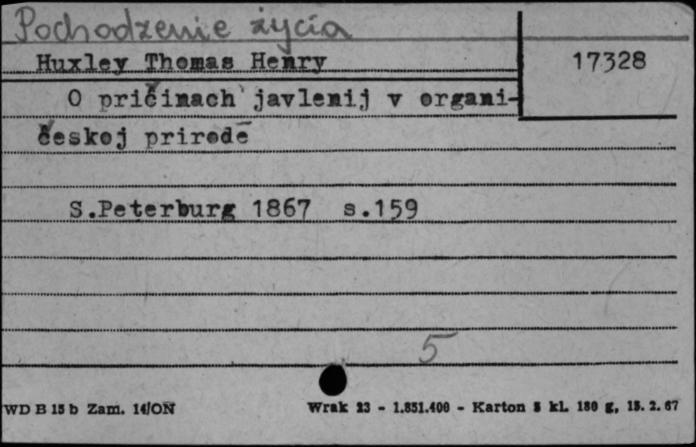 Pochodzenie życia
Huxley Thomas Henry
17328
O pričinach javlenij v organi-
českoj prirodě
S.Peterburg 1867 s.159
5
WD B 15 b Zam. 14/ON
Wrak 23 - 1.851.400 - Karton 5 kl. 180 g, 15. 2. 67